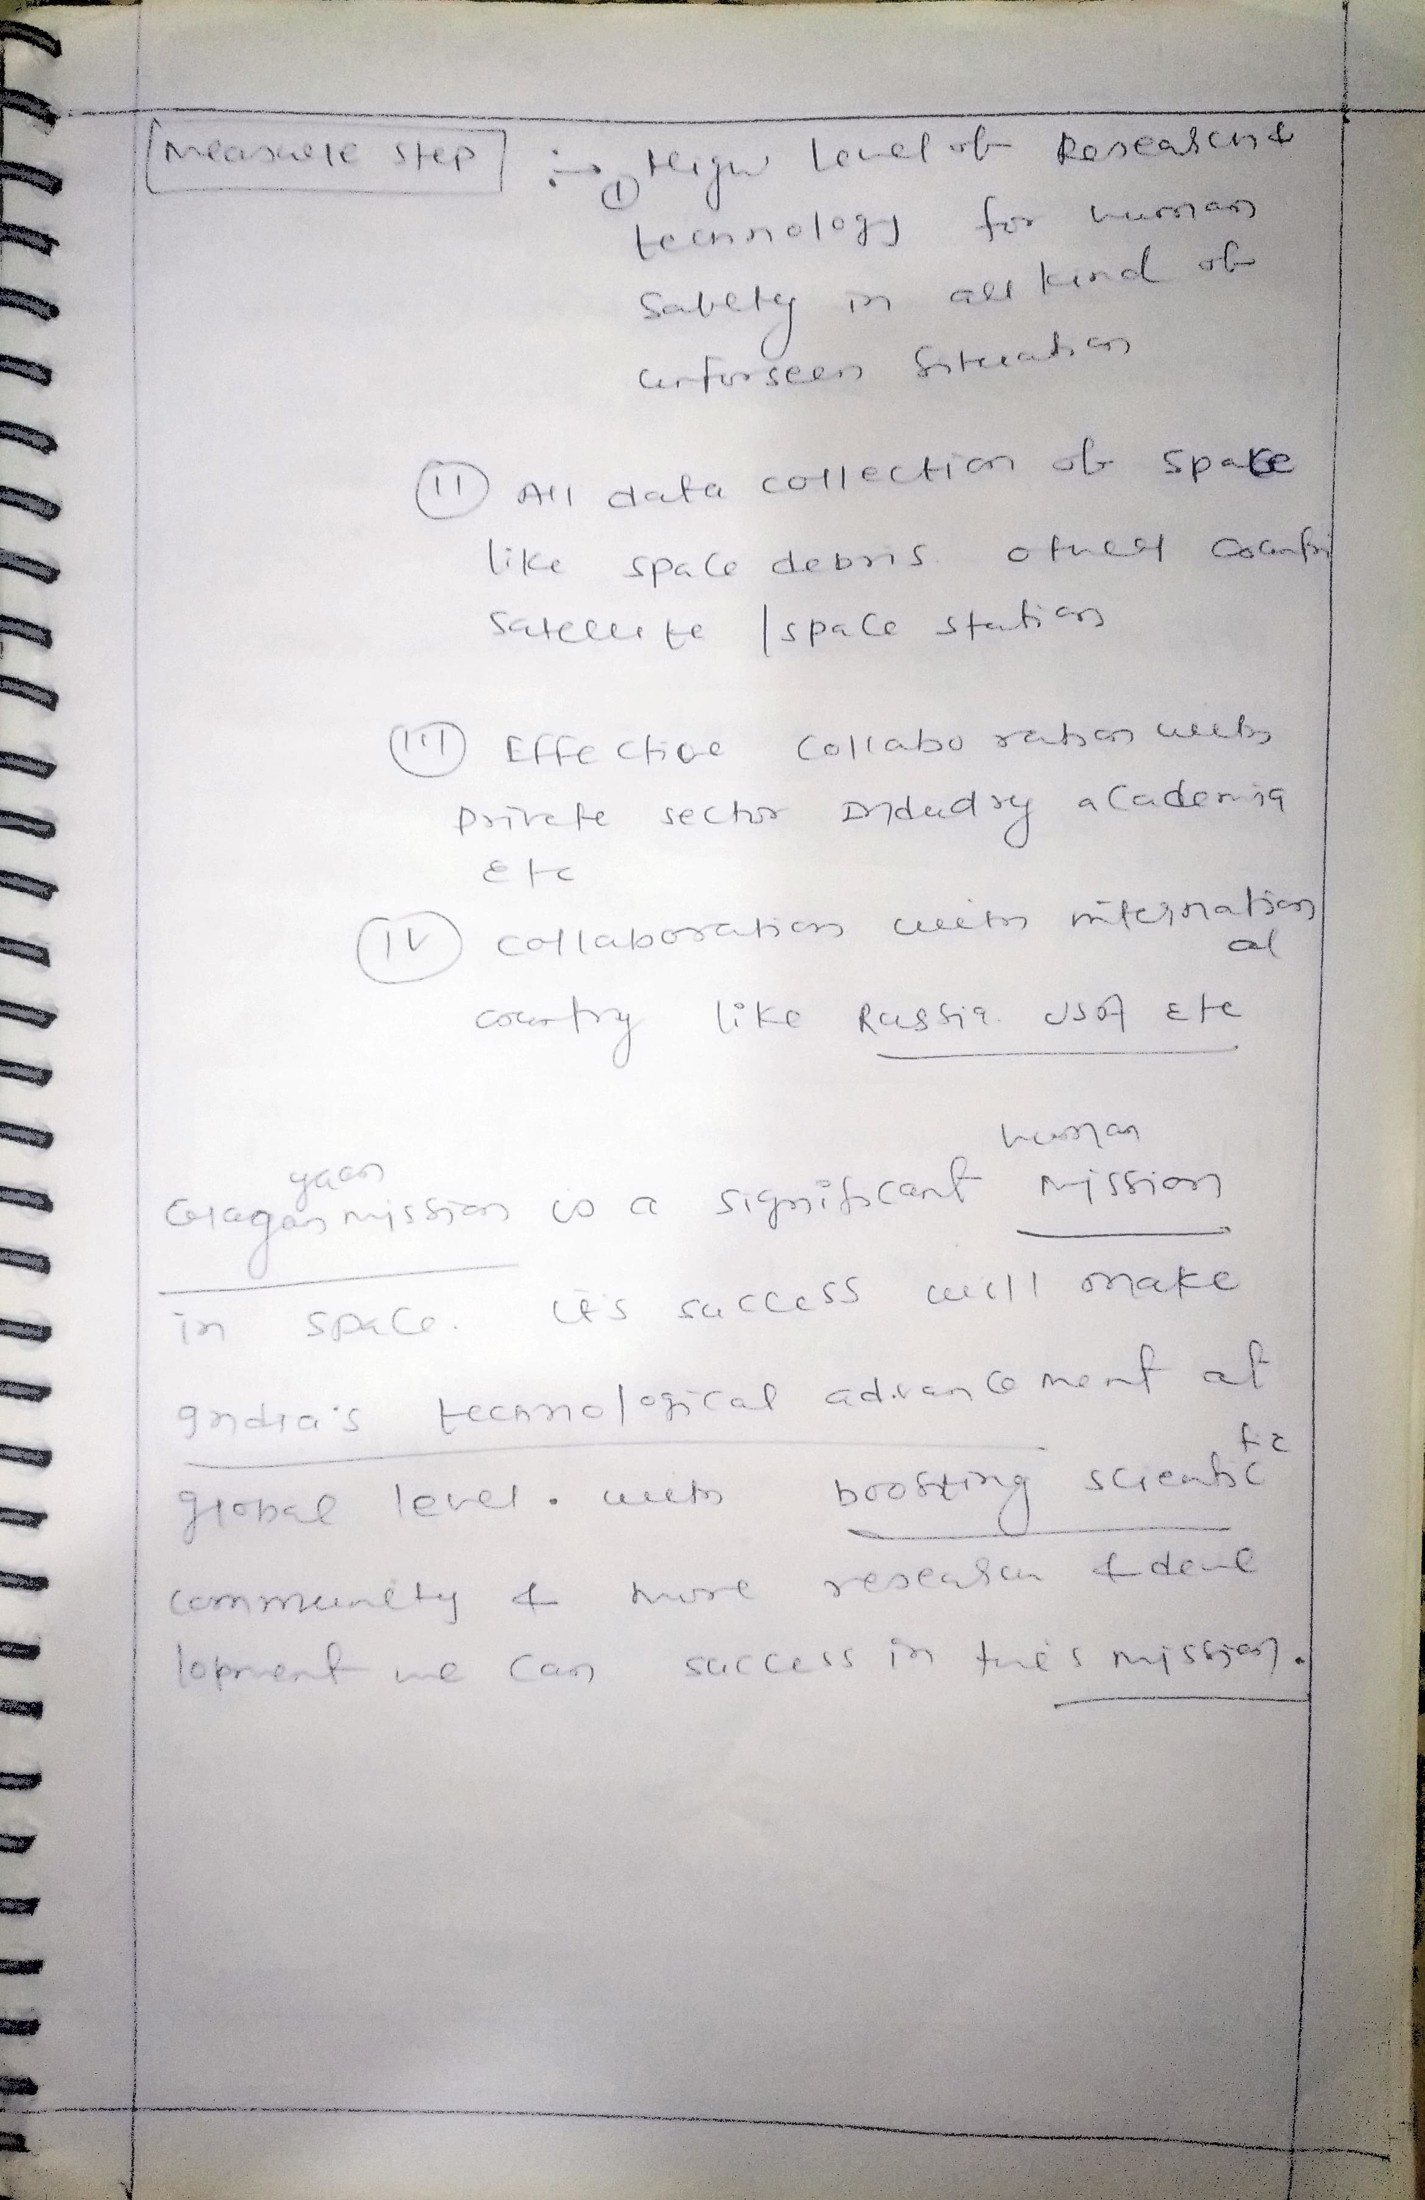 Measure step :→ ① High level of Research &
technology for human
Safety in all kind of
unforseen Situation
(II) All data collection of space
like space debris. other countri
satellite / space station
(III) Effective collaboration with
private sector Industry academia
etc
(IV) collaboration with internation
al
country like Russia. USA etc
human
yaan
Gagan mission is a significant mission
in space. its success will make
India's technological advancement at
global level. with boosting scientific
community & more research & deve
lopment we can success in this mission.